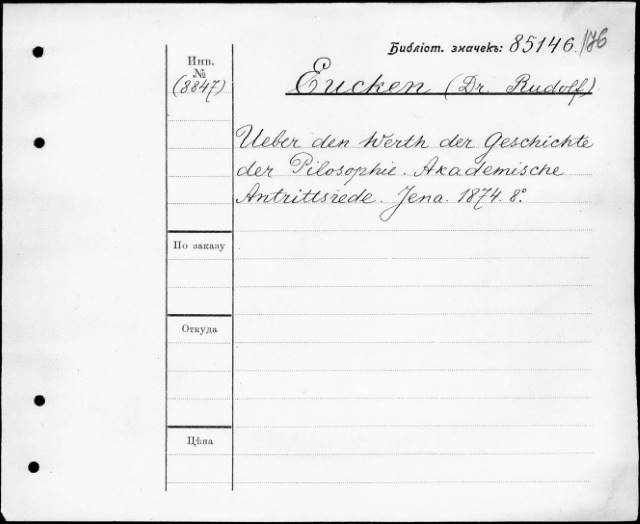 Библіот. значекъ: 85146./76
Инв.
№
(8847)
Eucken (Dr. Rudolf)
Ueber den Werth der Geschichte
der Pilosophie. Akademische
Antrittsrede. Jena. 1874. 8°.
По заказу
Откуда
Цѣна